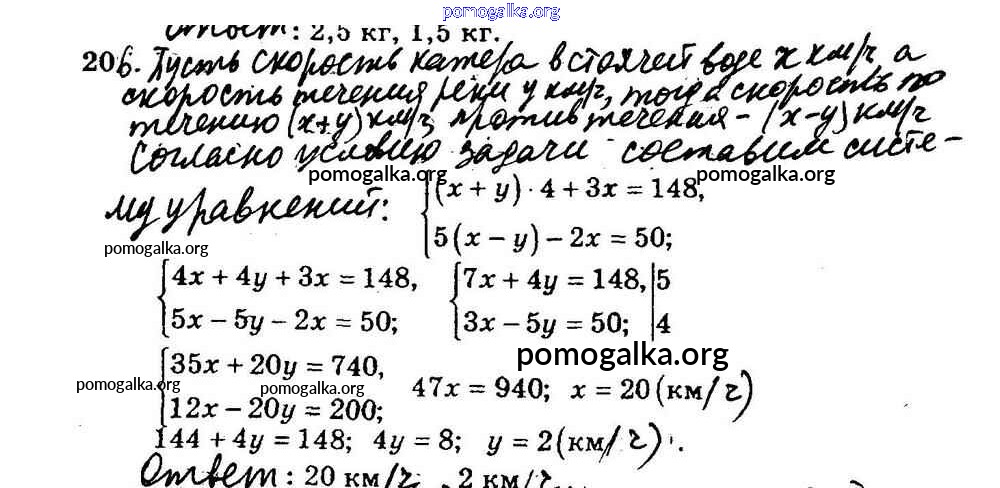 pomogalka.org
Ответ: 2,5 кг, 1,5 кг.
206. Пусть скорость катера в стоячей воде x км/ч, а
скорость течения реки y км/ч, тогда скорость по
течению (x+y) км/ч, против течения - (x-y) км/ч
Согласно условию задачи составим систе-
pomogalka.org pomogalka.org pomogalka.org
му уравнений: {(x + y) · 4 + 3x = 148,
5(x − y) − 2x = 50;
pomogalka.org
{4x + 4y + 3x = 148, {7x + 4y = 148, |5
5x − 5y − 2x = 50; 3x − 5y = 50; |4
pomogalka.org
{35x + 20y = 740,
pomogalka.org pomogalka.org 47x = 940; x = 20 (км/ч)
12x − 20y = 200;
144 + 4y = 148; 4y = 8; y = 2 (км/ч).
Ответ: 20 км/ч, 2 км/ч.